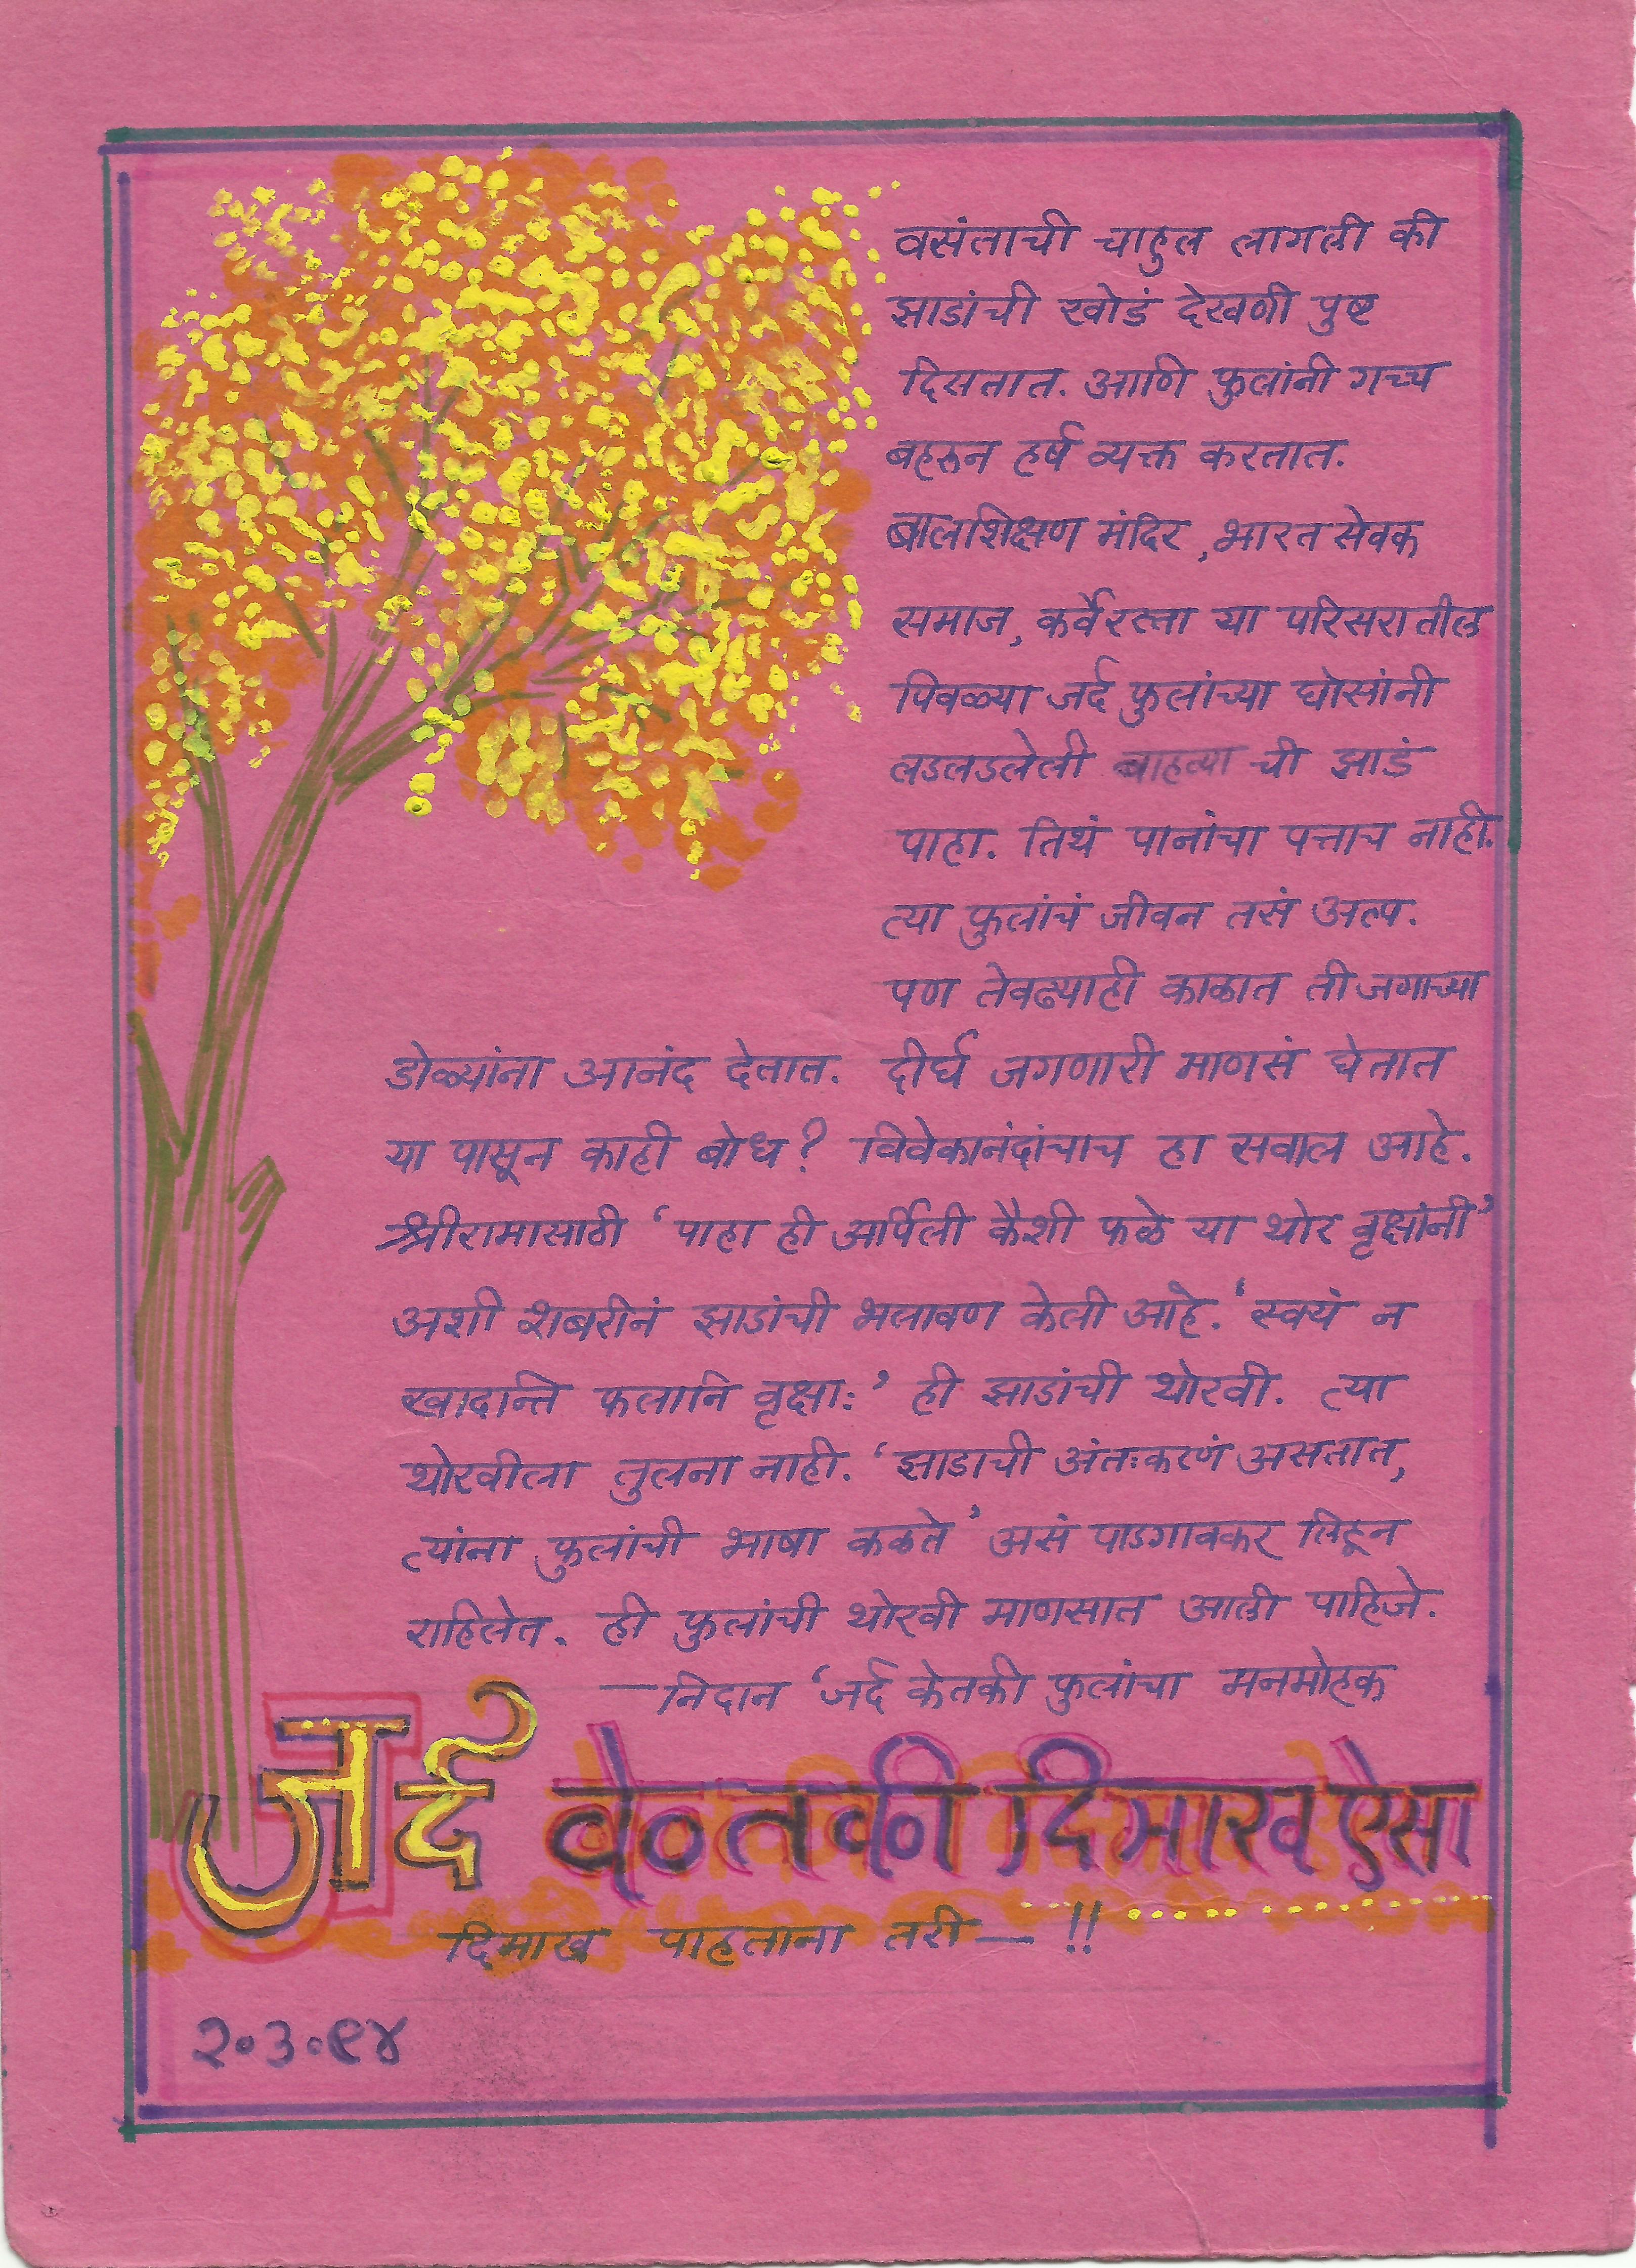 वसंताची चाहुल लागली की
झाडांची खोडं देखणी पुष्ट
दिसतात. आणि फुलांनी गच्च
बहरून हर्ष व्यक्त करतात.
बालशिक्षण मंदिर, भारत सेवक
समाज, कर्वेरस्ता या परिसरातील
पिवळ्या जर्द फुलांच्या घोसांनी
लडलडलेली बाहव्या ची झाडं
पाहा. तिथं पानांचा पत्ताच नाही.
त्या फुलांचं जीवन तसं अल्प.
पण तेवढ्याही काळात ती जगाच्या
डोळ्यांना आनंद देतात. दीर्घ जगणारी माणसं घेतात
या पासून काही बोध? विवेकानंदांचाच हा सवाल आहे.
श्रीरामासाठी ‘पाहा ही अर्पिली कैशी फळे या थोर वृक्षांनी’
अशी शबरीनं झाडांची भलावण केली आहे. ‘स्वयं न
खादन्ति फलानि वृक्षाः’ ही झाडांची थोरवी. त्या
थोरवीला तुलना नाही. ‘झाडाची अंतःकरणं असतात,
त्यांना फुलांची भाषा कळते’ असं पाडगावकर लिहून
राहिलेत. ही फुलांची थोरवी माणसात आली पाहिजे.
— निदान ‘जर्द केतकी फुलांचा मनमोहक
जर्द केतकी दिमाख ऐसा
दिमाख पाहताना तरी — !!
२.३.९४